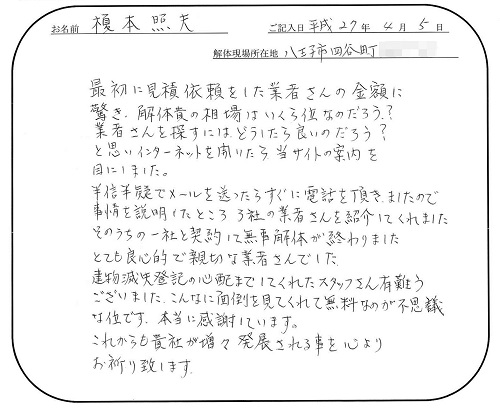 お名前 榎本照夫 ご記入日 平成27年4月5日
解体現場所在地 八王子市四谷町
最初に見積依頼をした業者さんの金額に
驚き、解体費の相場はいくら位なのだろう?
業者さんを探すにはどうしたら良いのだろう?
と思いインターネットを開いたら当サイトの案内を
目にしました。
半信半疑でメールを送ったらすぐに電話を頂きましたので
事情を説明したところ3社の業者さんを紹介してくれました
そのうちの一社と契約して無事解体が終わりました
とても良心的で親切な業者さんでした。
建物滅失登記の心配までしてくれたスタッフさん有難う
ございました。こんなに面倒を見てくれて無料なのが不思議
な位です。本当に感謝しています。
これからも貴社が増々発展される事を心より
お祈り致します。